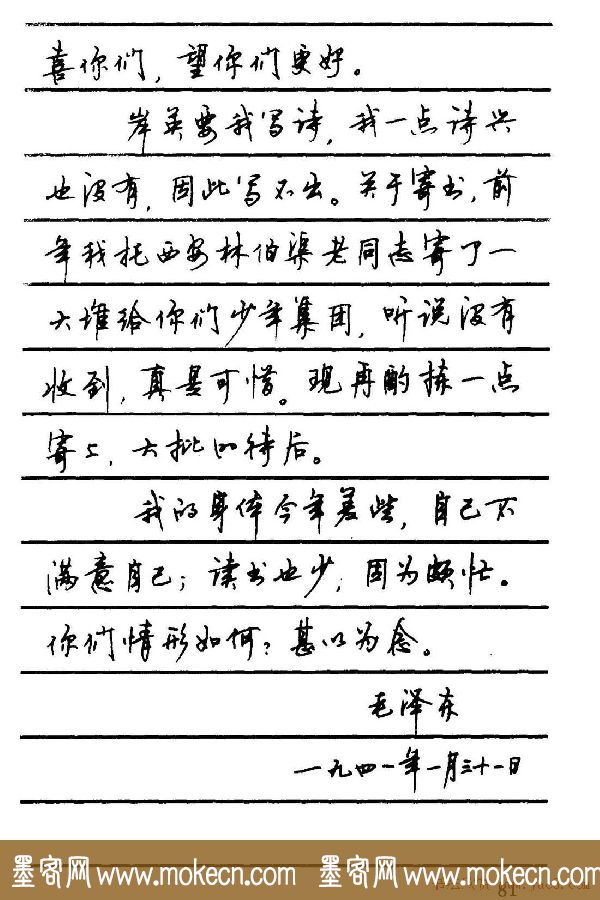 喜你们，望你们更好。
岸英要我写诗，我一点诗兴
也没有，因此写不出。关于寄书，前
年我托西安林伯渠老同志寄了一
大堆给你们少年集团，听说没有
收到，真是可惜。现再酌捡一点
寄上，大批的待后。
我的身体今年差些，自己不
满意自己；读书也少，因为颇忙。
你们情形如何？甚以为念。
毛泽东
一九四一年一月三十一日
墨客网 www.mokecn.com 墨客网 www.mokecn.com